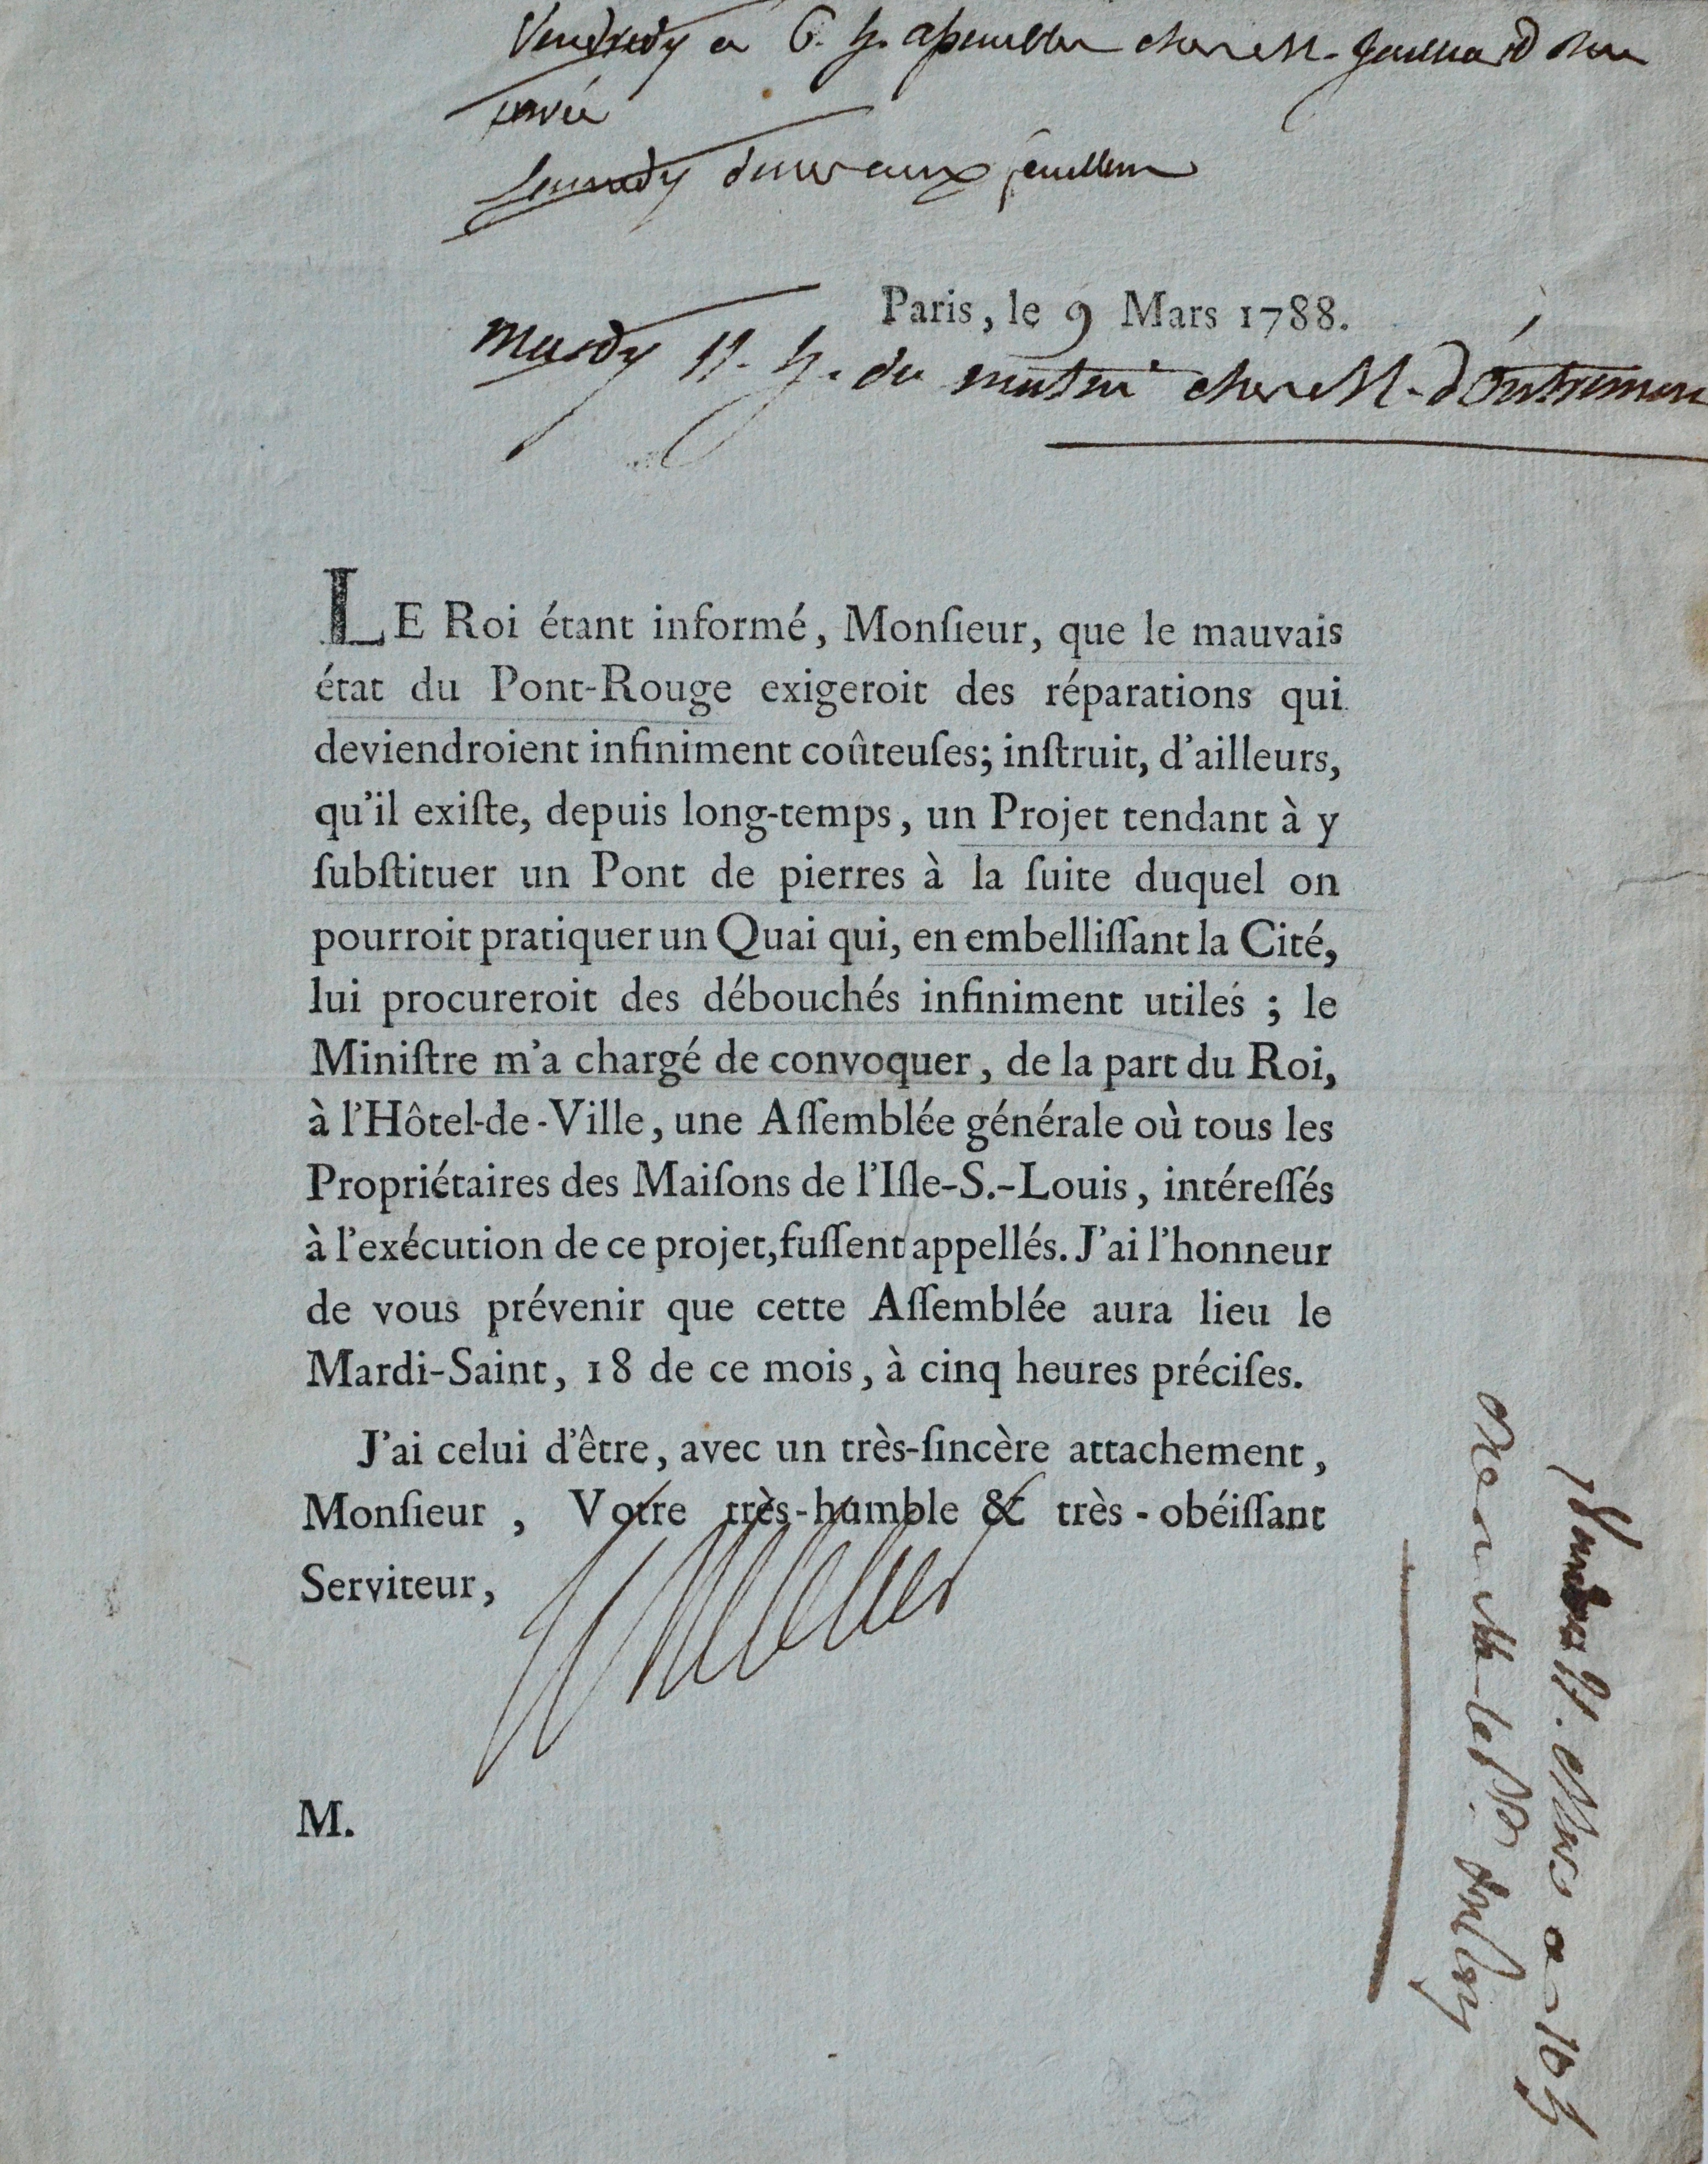 Vendredy a 6. h. assemblée chez M.
Samedy diner aux
Paris, le 9 Mars 1788.
Mardy 11. h. du matin chez M. d'Outremont
LE Roi étant informé, Monſieur, que le mauvais
état du Pont-Rouge exigeroit des réparations qui
deviendroient infiniment coûteuſes; inſtruit, d'ailleurs,
qu'il exiſte, depuis long-temps, un Projet tendant à y
ſubſtituer un Pont de pierres à la ſuite duquel on
pourroit pratiquer un Quai qui, en embelliſſant la Cité,
lui procureroit des débouchés infiniment utiles ; le
Miniſtre m'a chargé de convoquer, de la part du Roi,
à l'Hôtel-de-Ville, une Aſſemblée générale où tous les
Propriétaires des Maiſons de l'Iſle-S.-Louis, intéreſſés
à l'exécution de ce projet, fuſſent appellés. J'ai l'honneur
de vous prévenir que cette Aſſemblée aura lieu le
Mardi-Saint, 18 de ce mois, à cinq heures préciſes.
J'ai celui d'être, avec un très-ſincère attachement,
Monſieur, Votre très-humble & très-obéiſſant
Serviteur,
M.